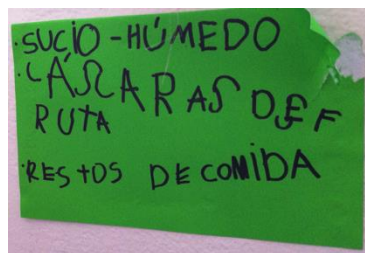 ·SUCIO - HÚMEDO
·CÁSCARAS DE F
RUTA
·RESTOS DE COMIDA